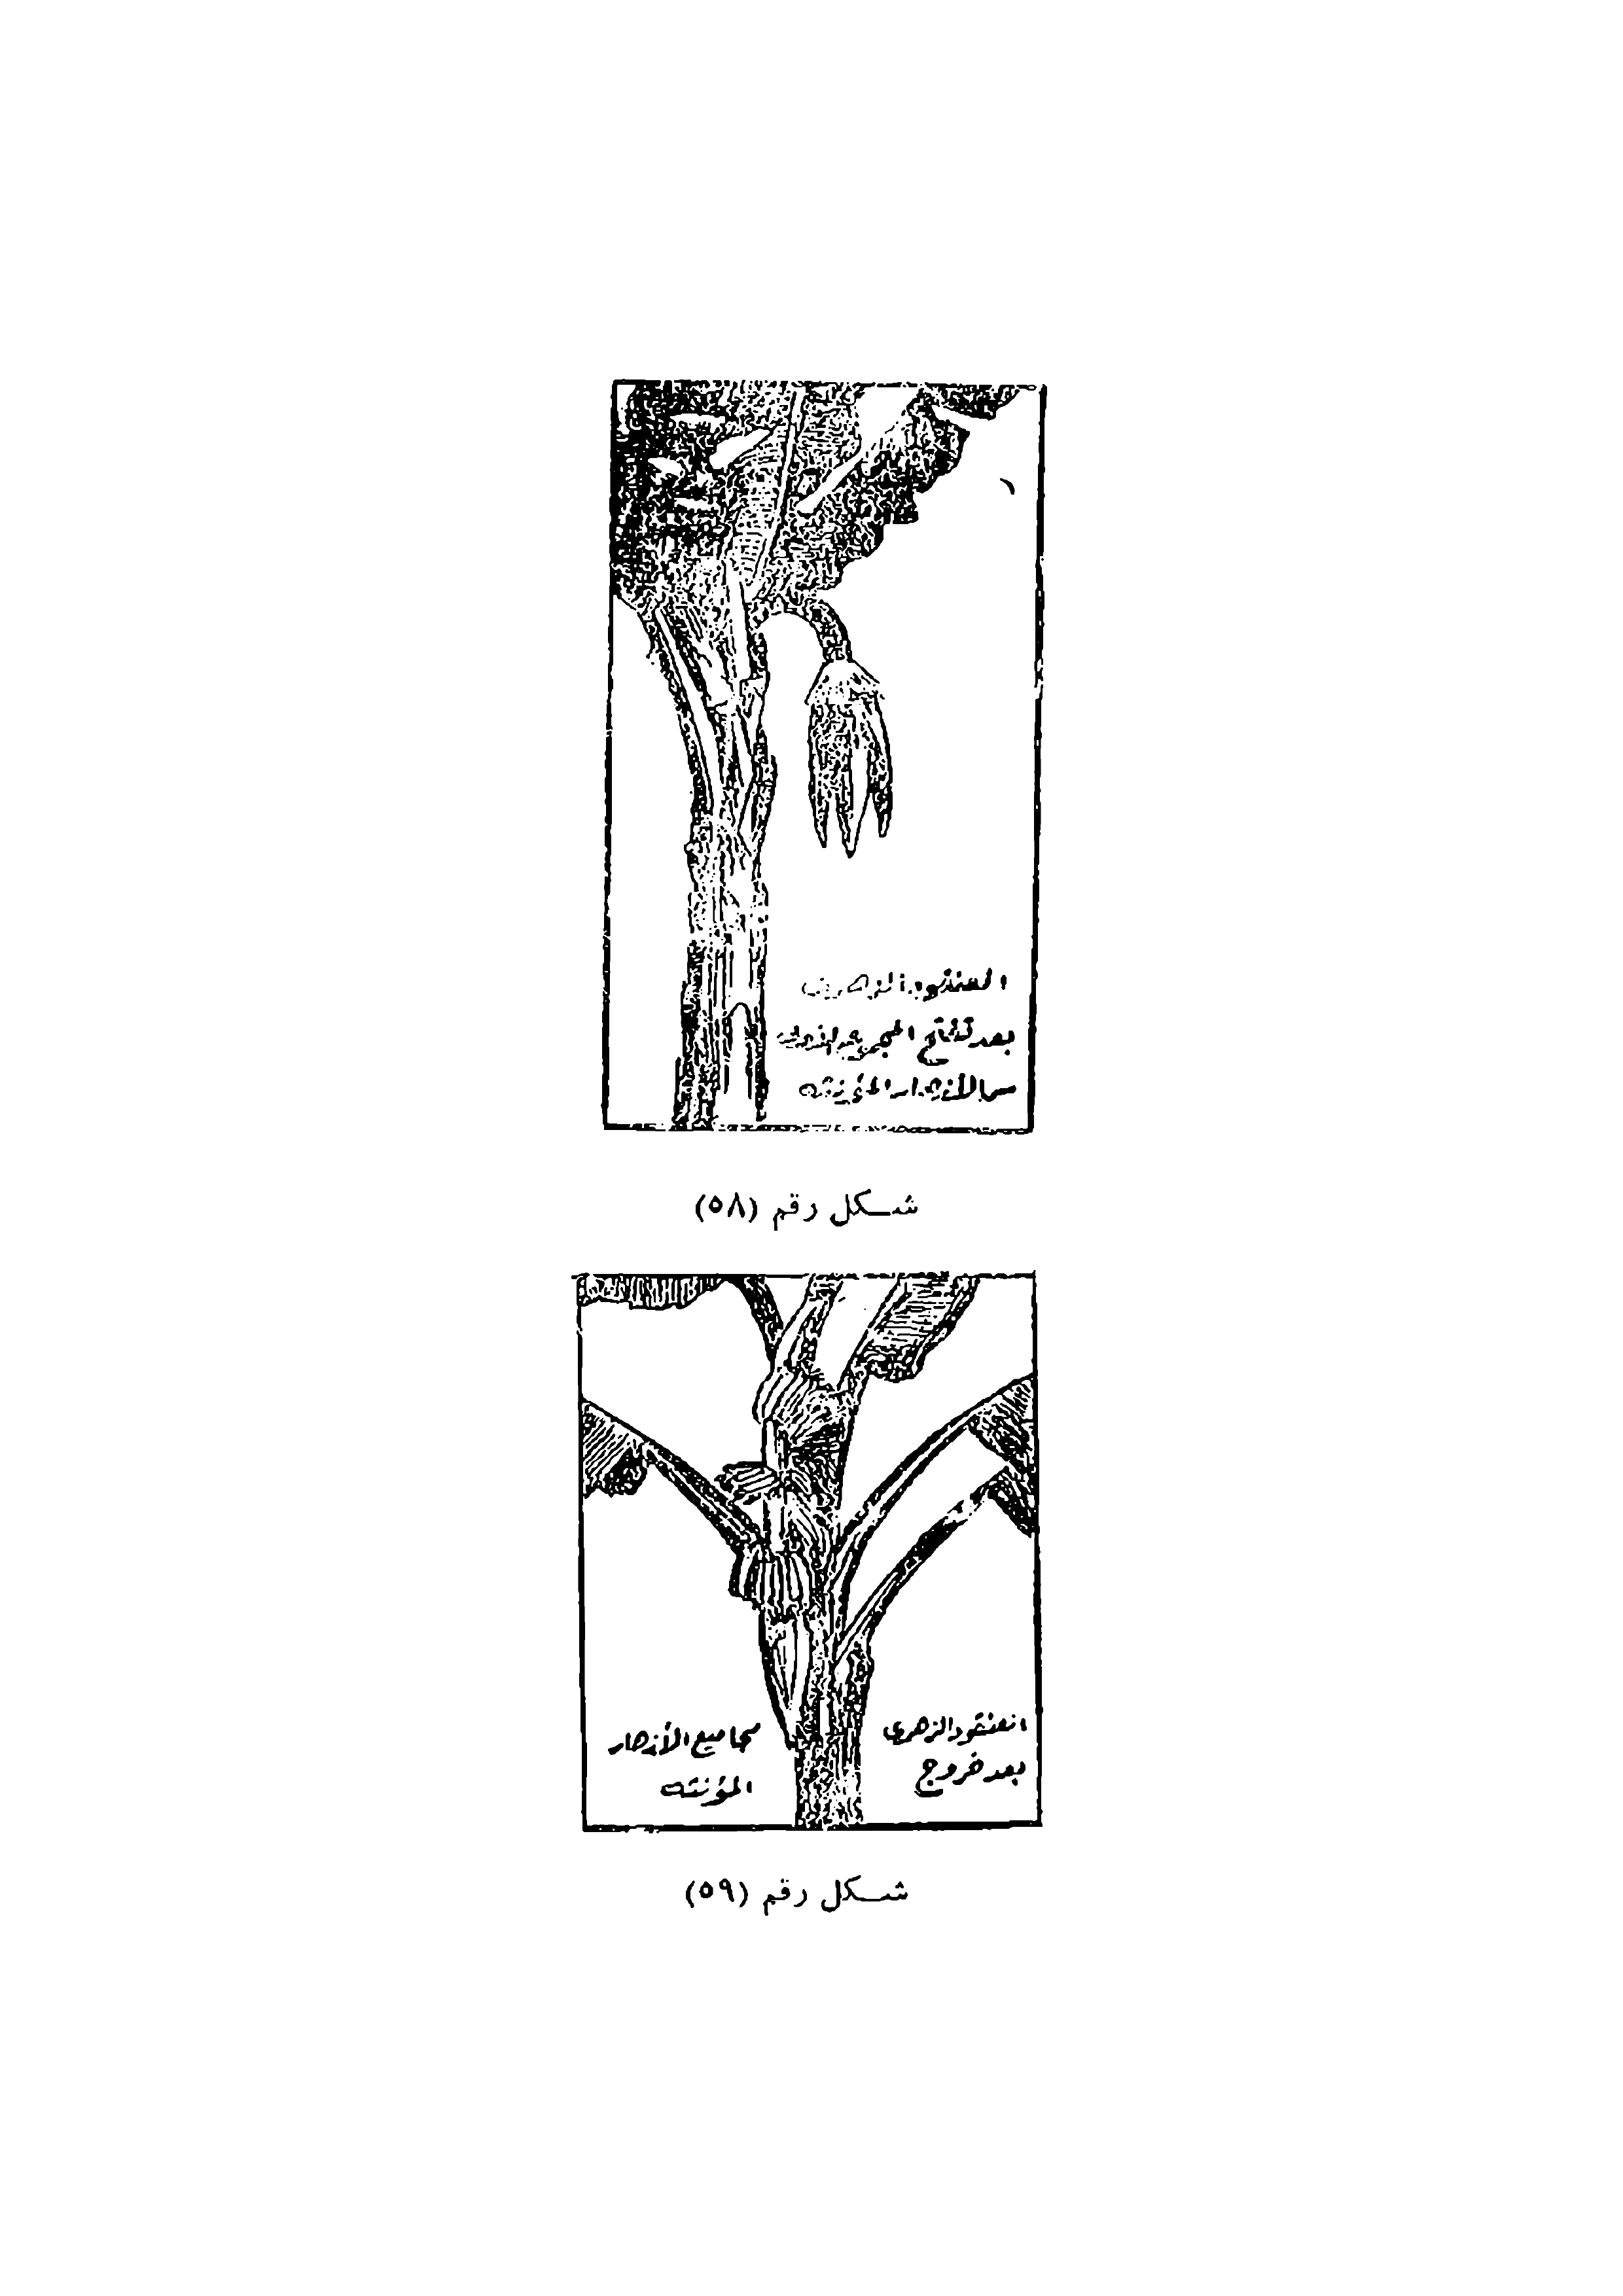 العنقود الزهري
بعد تفتح المجموعة الأولى
من الأزهار المؤنثة
شكل رقم (٥٨)
العنقود الزهري
بعد خروج
مجاميع الأزهار
المؤنثة
شكل رقم (٥٩)